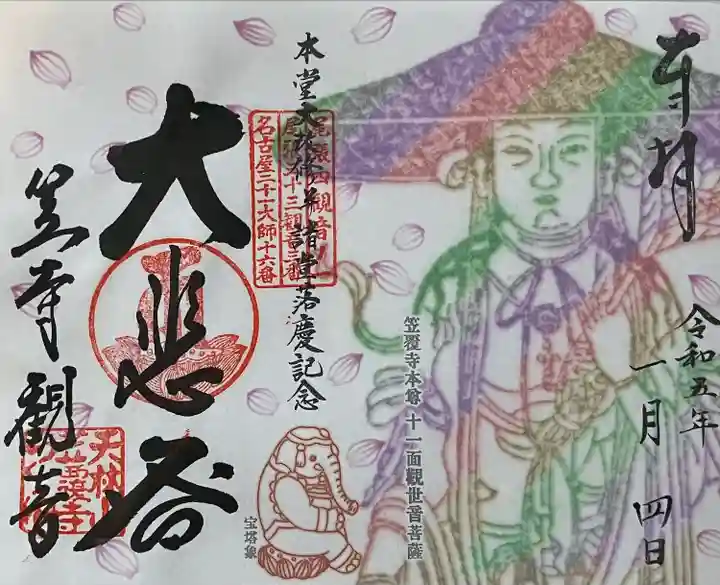 奉拝
令和五年
一月 四日
笠覆寺本尊 十一面觀世音菩薩
本堂大師堂諸堂落慶記念
尾張四観音
十三観音三番
名古屋二十一大師十六番
大悲
笠寺観音
宝塔象